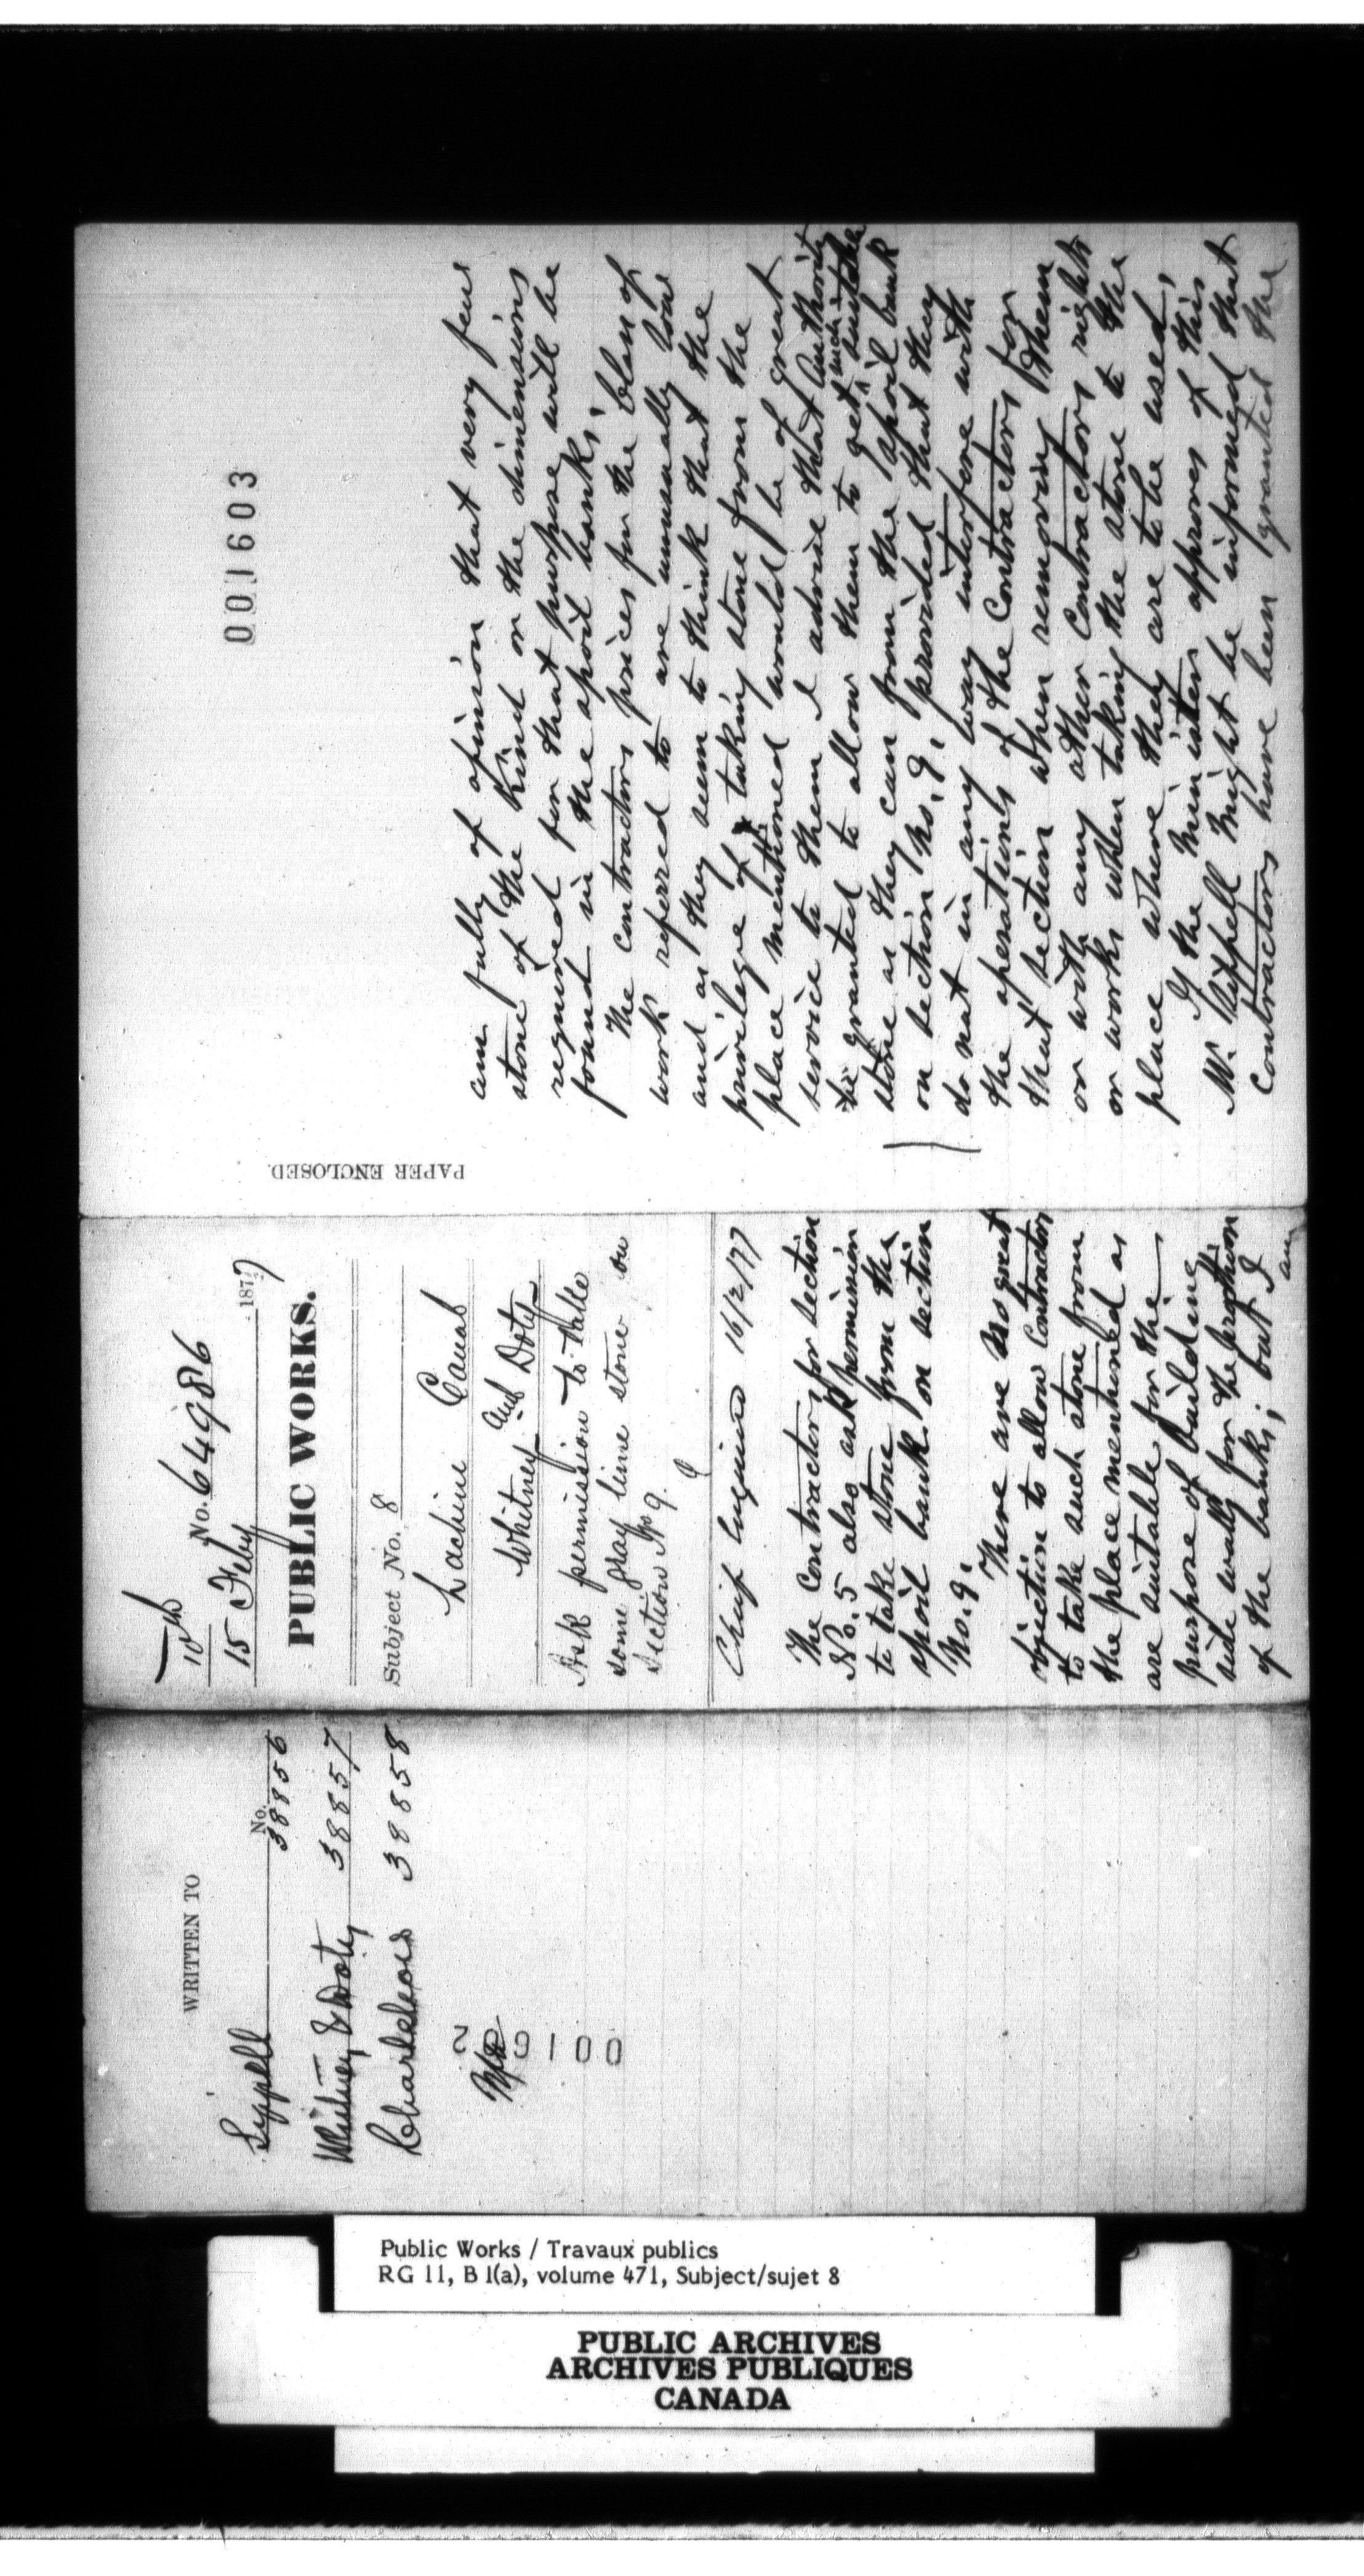 WRITTEN TO
No.
Sippell 38856
Whitney & Doty 38857
Charlebois 38858
001602
10th
No. 64986
15 Feby 1877
PUBLIC WORKS.
Subject No. 8
Lachine Canal
Whitney and Doty
Ask permission to take
some gray lime stone on
Section No 9.
Chief Engineer 16/2/77
The Contractors for section
No. 5 also ask permission
to take stone from the
spoil bank on section
No. 9.
There are no great
objection to allow Contractors
to take such stone from
the place mentioned as
are suitable for the
purpose of building
side walls for the protection
of the banks; but I
am
PAPER ENCLOSED.
001603
am fully of opinion that very few
stone of the kind or the dimensions
required for that purpose will be
found in the spoil banks.
The contractors prices for the class of
work referred to are unusually low
and as they seem to think that the
privilege of taking stone from the
place mentioned would be of great
service to them I advise that Authority
be granted to allow them to get such suitable
stone as they can from the spoil bank
on section No. 9. provided that they
do not in any way interfere with
the operations of the Contractors for
that section when removing them
or with any other Contractors rights
or works when taking the stone to the
place where they are to be used.
If the Minister approves of this
Mr. Sippell might be informed that
Contractors have been granted the
Public Works / Travaux publics
RG 11, B 1(a), volume 471, Subject/sujet 8
PUBLIC ARCHIVES
ARCHIVES PUBLIQUES
CANADA